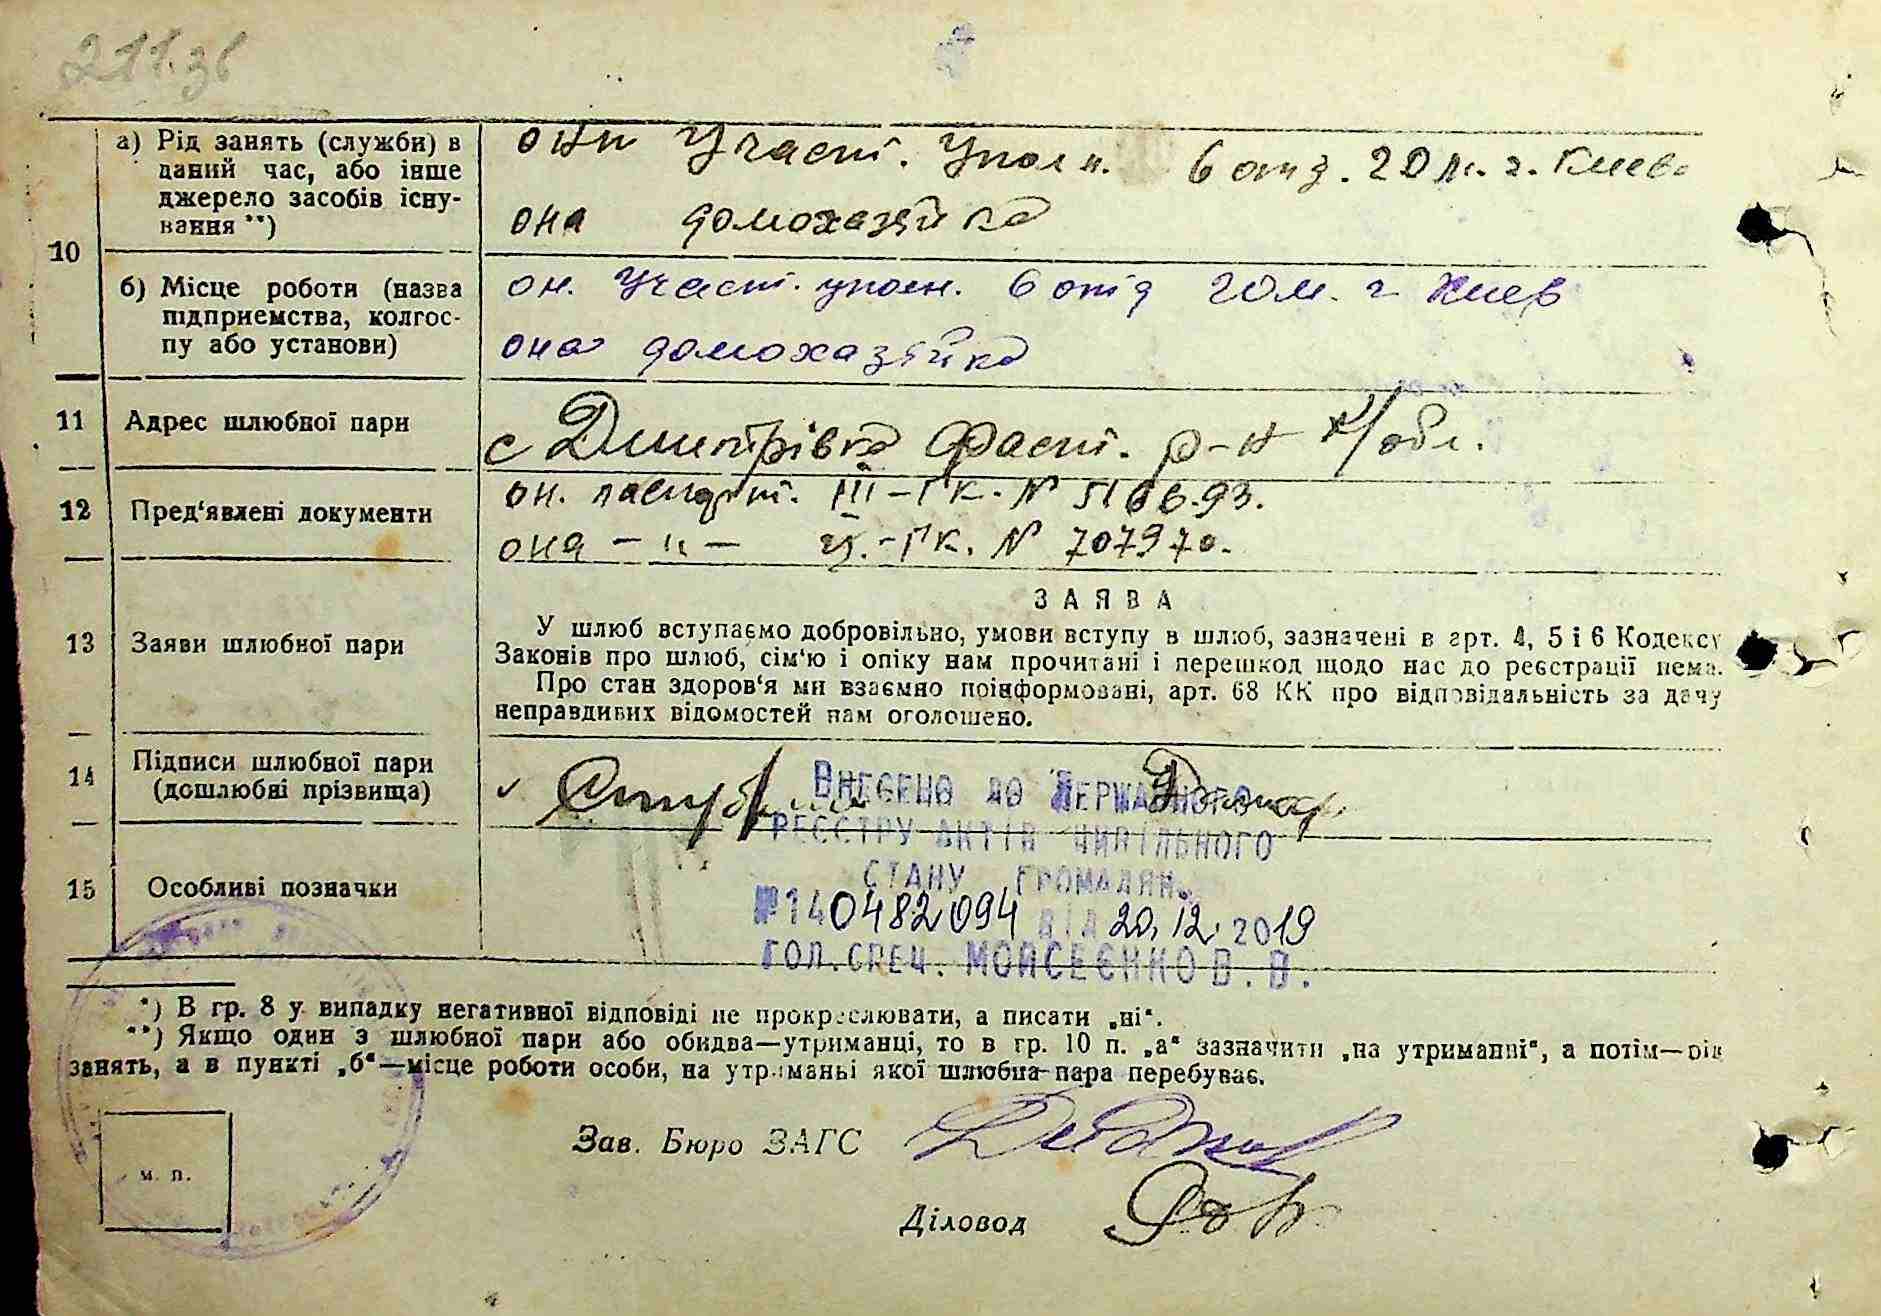 211. зв
а) Рід занять (служби) в
даний час, або інше
джерело засобів існу-
вання **)
он Участ. Уполн. 6 отд. ГОМ. г. Киев
она домохазяйка
10
б) Місце роботи (назва
підприемства, колгос-
пу або установи)
он. Участ. уполн. 6 отд ГОМ. г Киев
она домохазяйка
11 Адрес шлюбної пари
с Дмитрівка Фаст. р-н К/обл.
12 Пред‘явлені документи
он. паспорт. III-ГК. N 516693.
она - " - -ГК. N 707970.
13 Заяви шлюбної пари
ЗАЯВА
У шлюб вступаємо добровільно, умови вступу в шлюб, зазначені в арт. 4, 5 і 6 Кодексу
Законів про шлюб, сім‘ю і опіку нам прочитані і перешкод щодо нас до реєстрації нема.
Про стан здоров‘я ми взаємно поінформовані, арт. 68 КК про відповідальність за дачу
неправдивих відомостей нам оголошено.
14 Підписи шлюбної пари
(дошлюбні прізвища)
ВНЕСЕНО ДО ДЕРЖАВНОГО
РЕЄСТРУ АКТІВ ЦИВІЛЬНОГО
СТАНУ ГРОМАДЯН
№140482094 ВІД 20.12.2019
ГОЛ.СПЕЦ. МОЙСЕЄНКО В.В.
15 Особливі позначки
*) В гр. 8 у випадку негативної відповіді не прокреслювати, а писати „ні“.
**) Якщо один з шлюбної пари або обидва—утриманці, то в гр. 10 п. „а“ зазначити „на утриманні“, а потім—рід
занять, а в пункті „б“—місце роботи особи, на утриманьі якої шлюбна пара перебуває.
м. п.
Зав. Бюро ЗАГС
Діловод